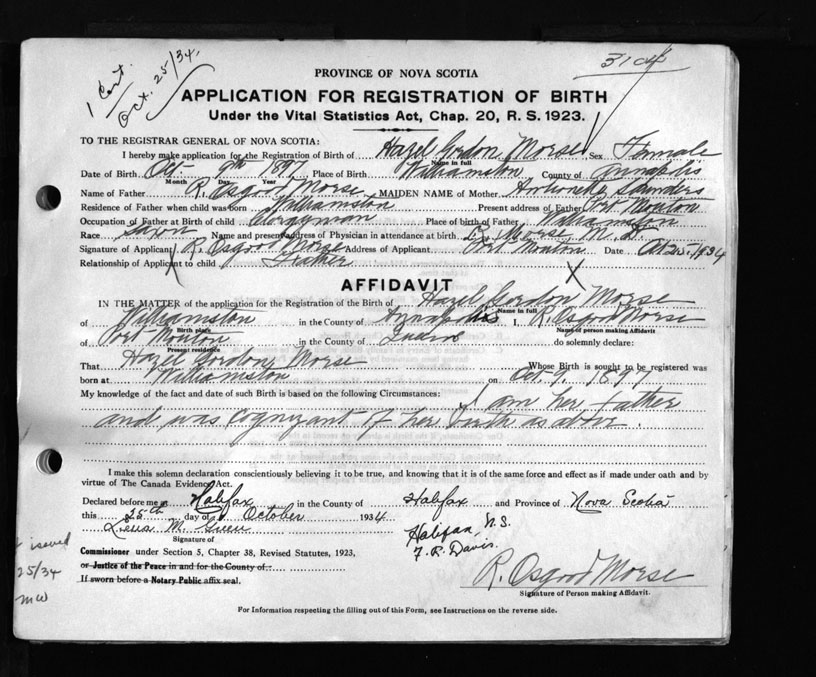 1 Cert.
Oct. 25/34.
3104
PROVINCE OF NOVA SCOTIA
APPLICATION FOR REGISTRATION OF BIRTH
Under the Vital Statistics Act, Chap. 20, R. S. 1923.
TO THE REGISTRAR GENERAL OF NOVA SCOTIA:
I hereby make application for the Registration of Birth of Hazel Gordon Morse Sex Female
Name in full
Date of Birth Oct 9th 1897 Place of Birth Williamston County of Annapolis
Month Day Year
Name of Father R. Osgood Morse MAIDEN NAME of Mother Saunders
Residence of Father when child was born Williamston Present address of Father Port Mouton
Occupation of Father at Birth of child Clergyman Place of birth of Father Williamston
Race Saxon Name and present address of Physician in attendance at birth Morse M.D.
Signature of Applicant R. Osgood Morse Address of Applicant Port Mouton Date Oct 25, 1934
Relationship of Applicant to child Father
X X
AFFIDAVIT
IN THE MATTER of the application for the Registration of the Birth of Hazel Gordon Morse
Name in full
of Williamston in the County of Annapolis I, R. Osgood Morse
Birth place Name of person making Affidavit
of Port Mouton in the County of Queens do solemnly declare:
Present residence
That Hazel Gordon Morse Whose Birth is sought to be registered was
born at Williamston on Oct. 9, 1897
My knowledge of the fact and date of such Birth is based on the following Circumstances: I am her father
and was cognizant of her birth as above.
I make this solemn declaration conscientiously believing it to be true, and knowing that it is of the same force and effect as if made under oath and by
virtue of The Canada Evidence Act.
Declared before me at Halifax in the County of Halifax and Province of Nova Scotia
this 25th day of October 1934
Lena M. Halifax, N.S.
Signature of F. R. Davis.
Commissioner under Section 5, Chapter 38, Revised Statutes, 1923,
or Justice of the Peace in and for the County of:
If sworn before a Notary Public affix seal.
R. Osgood Morse
Signature of Person making Affidavit.
issued
25/34
MW
For Information respecting the filling out of this Form, see Instructions on the reverse side.